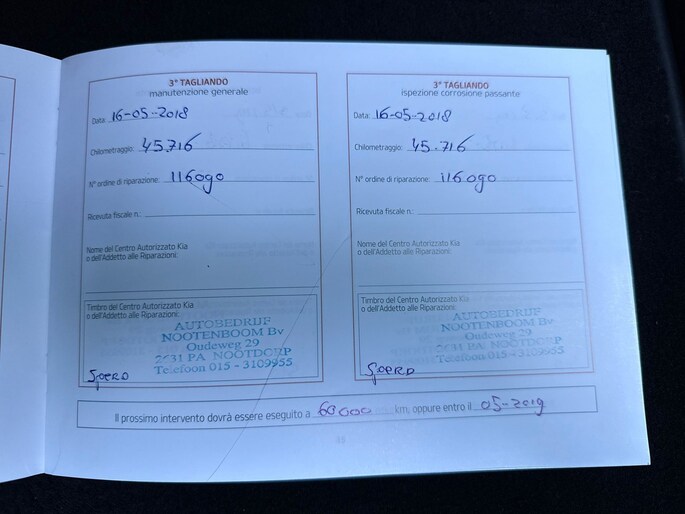 3° TAGLIANDO
manutenzione generale
Data: 16-05-2018
Chilometraggio: 45.716
N° ordine di riparazione: 116090
Ricevuta fiscale n.:
Nome del Centro Autorizzato Kia
o dell'Addetto alle Riparazioni:
Timbro del Centro Autorizzato Kia
o dell'Addetto alle Riparazioni:
AUTOBEDRIJF
NOOTENBOOM Bv
Oudeweg 29
2631 PA NOOTDORP
Telefoon 015 - 3109955
SJOERD
3° TAGLIANDO
ispezione corrosione passante
Data: 16-05-2018
Chilometraggio: 45.716
N° ordine di riparazione: 116090
Ricevuta fiscale n.:
Nome del Centro Autorizzato Kia
o dell'Addetto alle Riparazioni:
Timbro del Centro Autorizzato Kia
o dell'Addetto alle Riparazioni:
AUTOBEDRIJF
NOOTENBOOM Bv
Oudeweg 29
2631 PA NOOTDORP
Telefoon 015 - 3109955
SJOERD
Il prossimo intervento dovrà essere eseguito a 60000 km, oppure entro il 05-2019